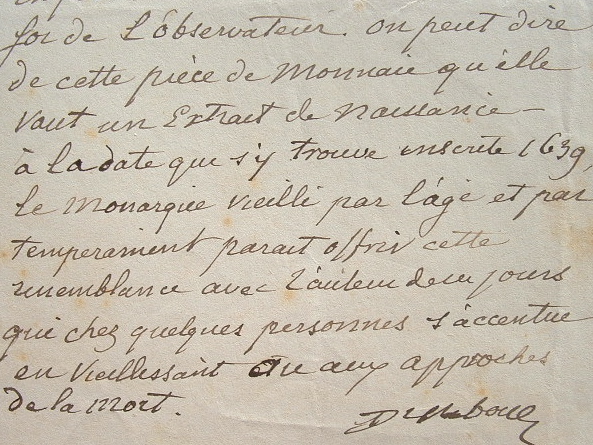 foi de L'Observateur. on peut dire
de cette pièce de Monnaie qu'elle
vaut un Extrait de naissance –
à la date qui s'y trouve inscrite 1639,
le Monarque vieilli par l'âge et par
temperament parait offrir cette
ressemblance avec l'auteur de ses jours
qui chez quelques personnes s'accentue
en vieillissant ou aux approches
de la Mort.